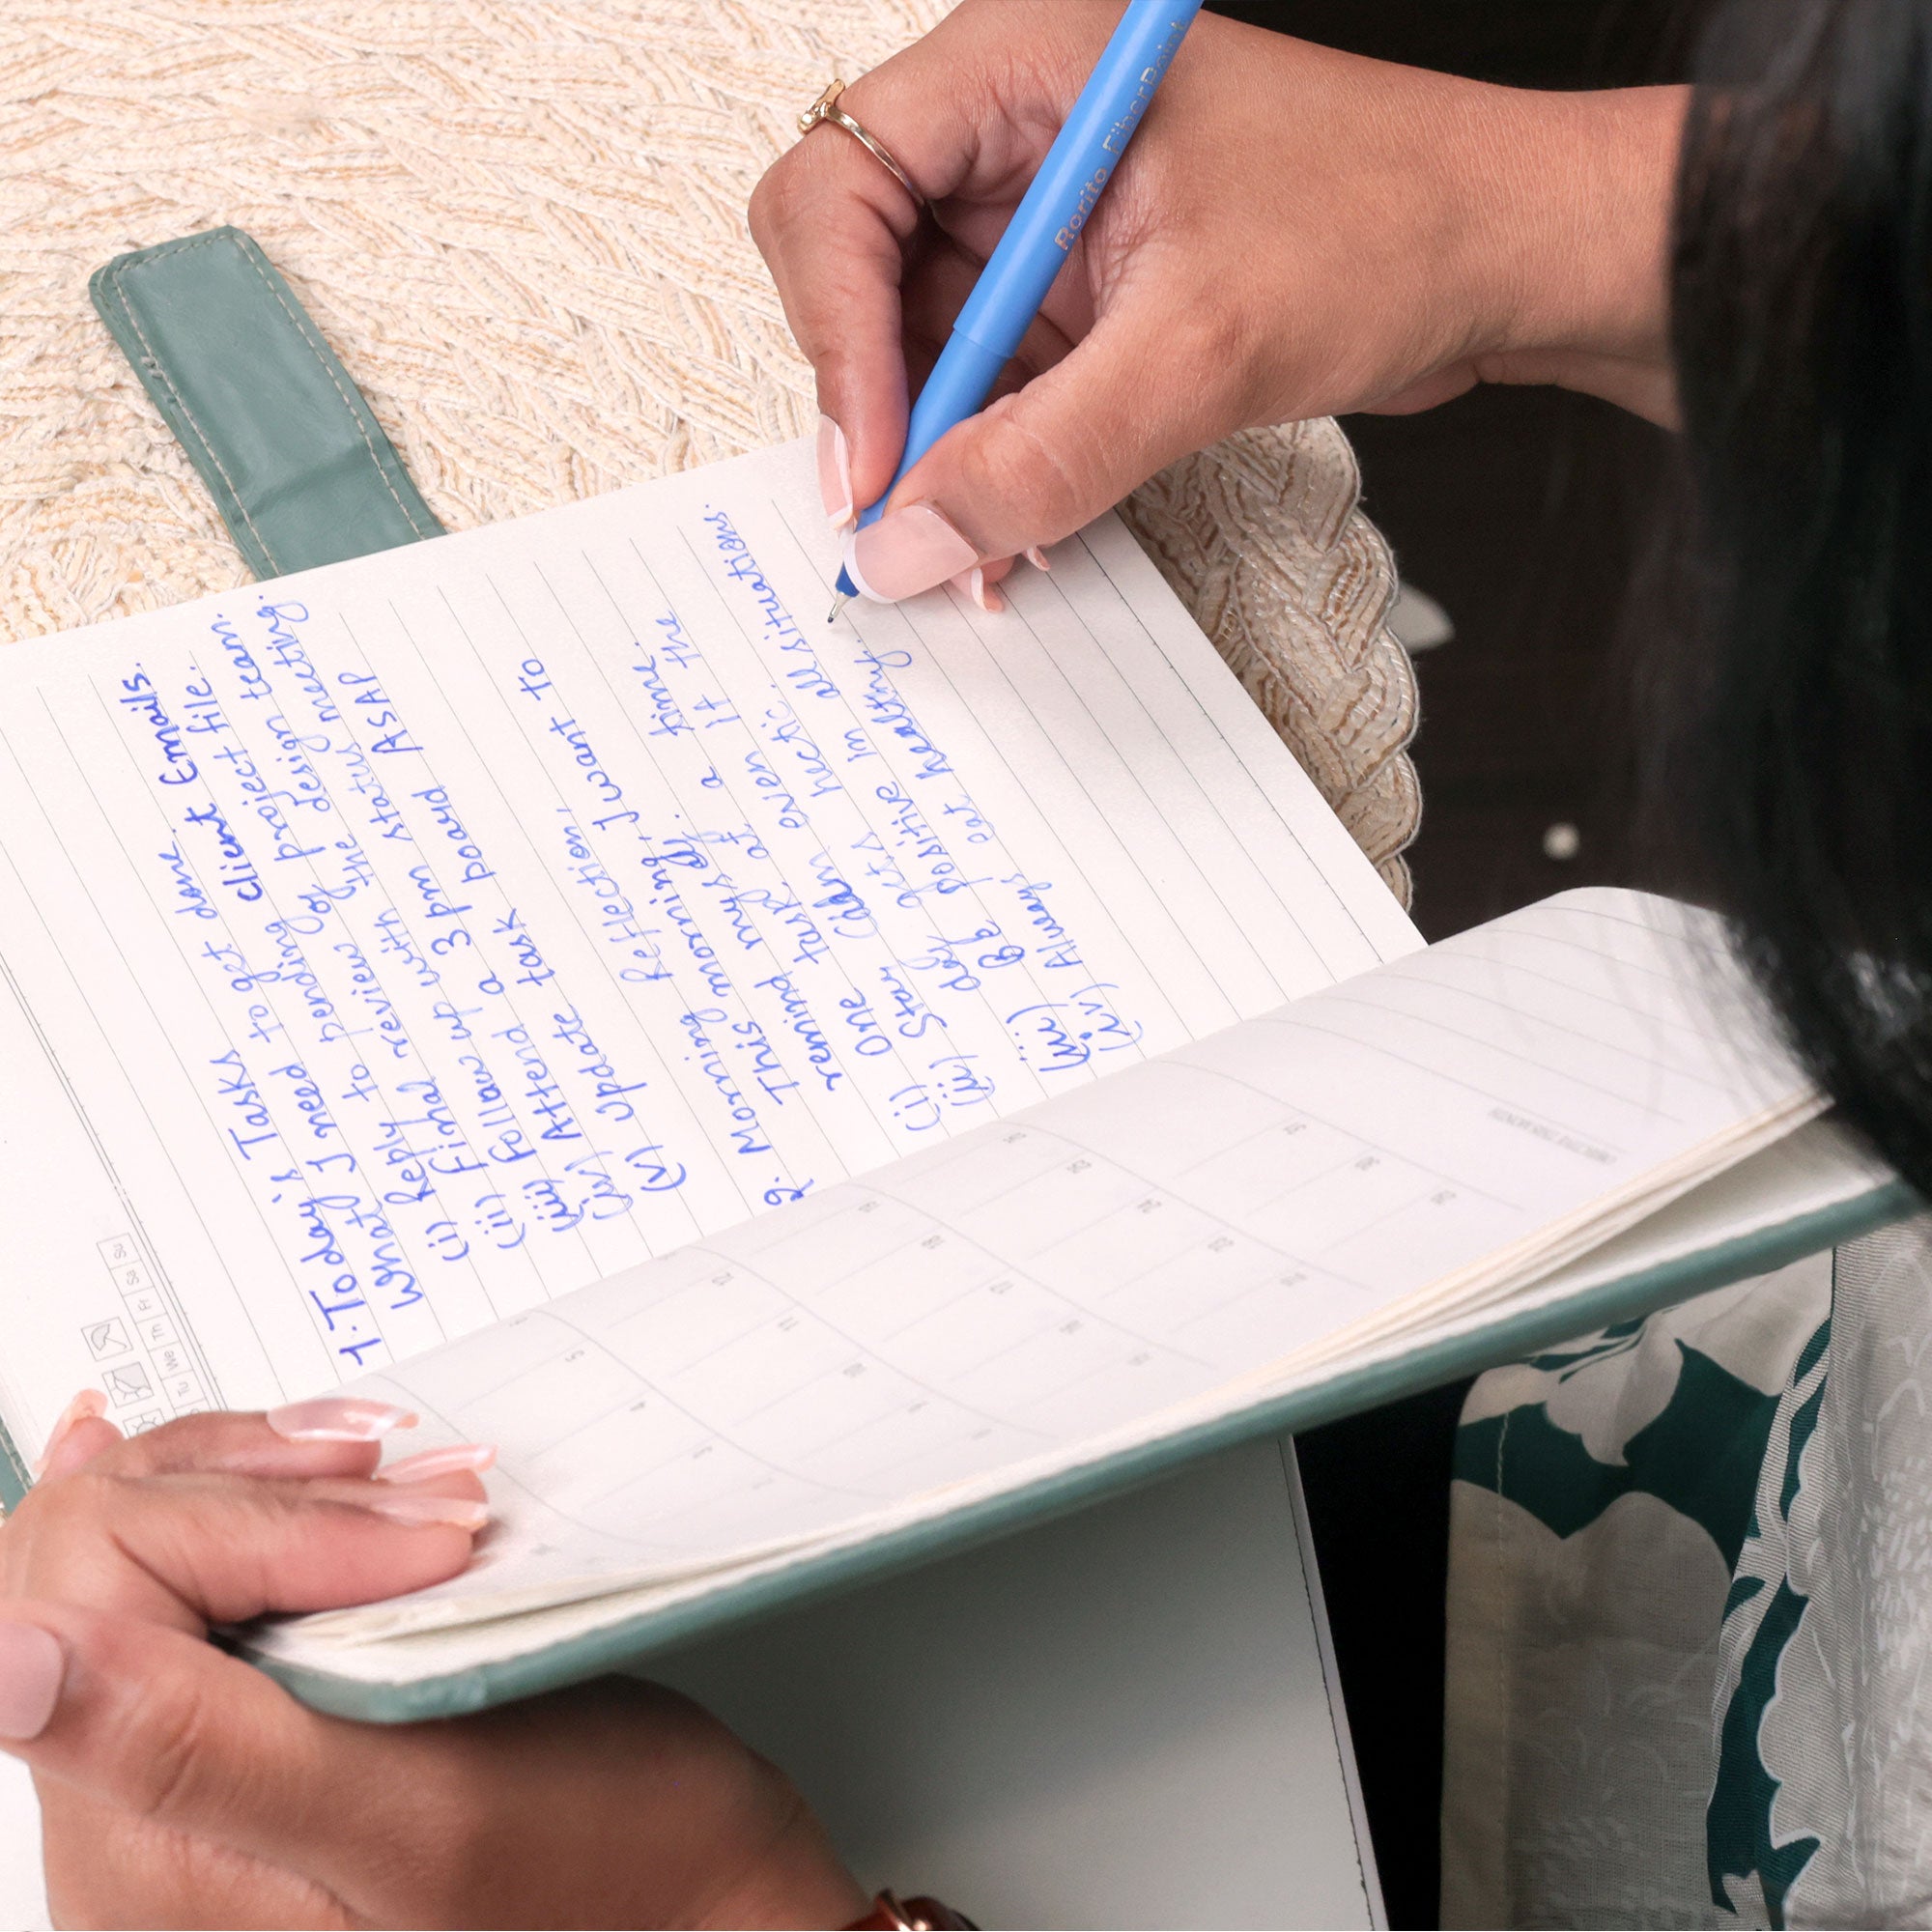 1. Today's Tasks
What I need to get done.
(i) Reply to pending client Emails.
(ii) Final review of project file.
(iii) Follow up with the design team.
(iv) Attend a 3 pm status meeting.
(v) Update task board ASAP
2. Morning Reflection,
This morning, I want to
remind myself.
(i) One task at a time.
(ii) Stay calm even If the
day gets hectic.
(iii) Be positive In all situations.
(iv) Always eat healthy.
Tu We Th Fr Sa Su
Rorito FiberPoint